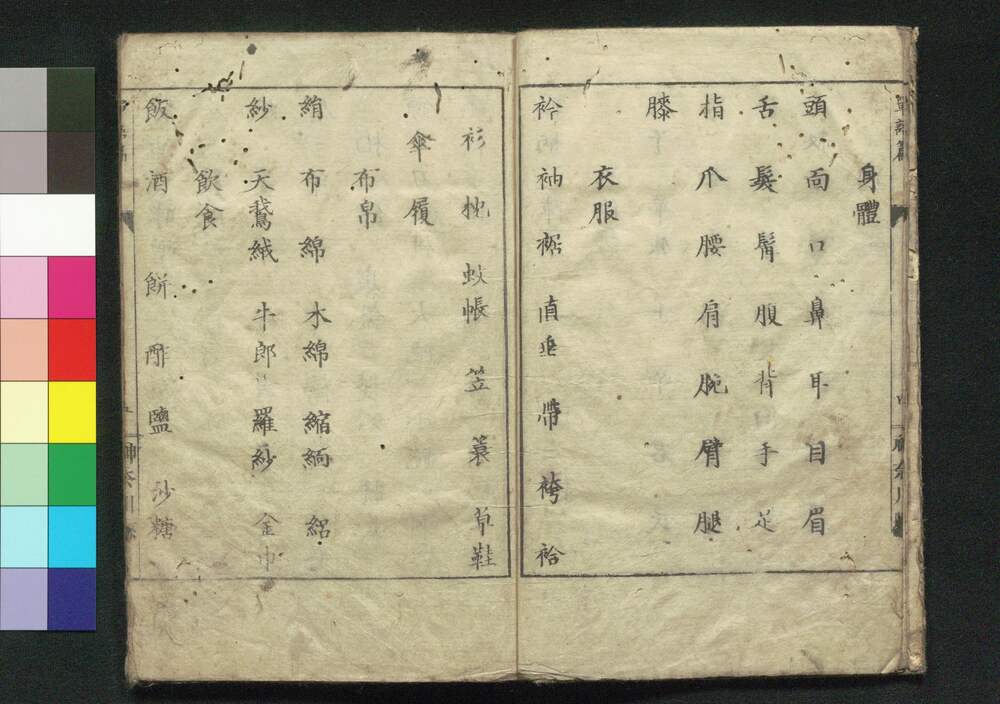 身體
頭 面 口 鼻 耳 目 眉
舌 髮 臂 腹 背 手 足
指 爪 腰 肩 腕 臂 腿
膝
衣服
衿 袖 裾 直垂 帶 袴 袷
衫 枕 蚊帳 笠 蓑 草鞋
傘 履
布帛
絹 布 綿 木綿 縮緬 絽
紗 天鵞絨 牛郎 羅紗 金巾
飲食
飯 酒 餅 酢 鹽 沙糖
神奈川